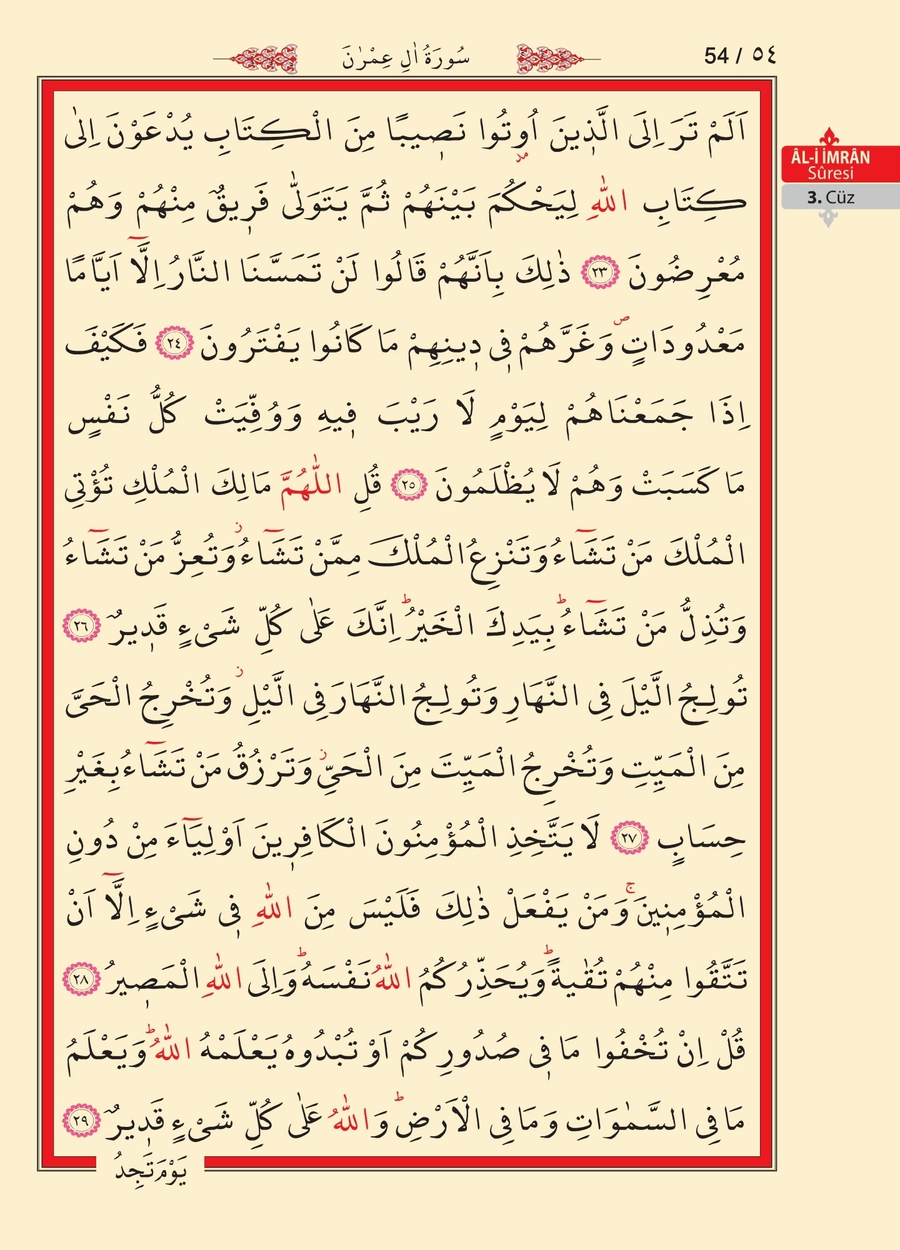 سُورَةُ اٰلِ عِمْرٰنَ
54 / ٥٤
ÂL-İ İMRÂN
Sûresi
3. Cüz
اَلَمْ تَرَ اِلَى الَّذ۪ينَ اُو۫تُوا نَص۪يبًا مِنَ الْكِتَابِ يُدْعَوْنَ اِلٰى
كِتَابِ اللّٰهِ لِيَحْكُمَ بَيْنَهُمْ ثُمَّ يَتَوَلّٰى فَر۪يقٌ مِنْهُمْ وَهُمْ
مُعْرِضُونَ ﴿٢٣﴾ ذٰلِكَ بِاَنَّهُمْ قَالُوا لَنْ تَمَسَّنَا النَّارُ اِلَّٓا اَيَّامًا
مَعْدُودَاتٍۖ وَغَرَّهُمْ ف۪ي د۪ينِهِمْ مَا كَانُوا يَفْتَرُونَ ﴿٢٤﴾ فَكَيْفَ
اِذَا جَمَعْنَاهُمْ لِيَوْمٍ لَا رَيْبَ ف۪يهِ وَوُفِّيَتْ كُلُّ نَفْسٍ
مَا كَسَبَتْ وَهُمْ لَا يُظْلَمُونَ ﴿٢٥﴾ قُلِ اللّٰهُمَّ مَالِكَ الْمُلْكِ تُؤْتِي
الْمُلْكَ مَنْ تَشَٓاءُ وَتَنْزِعُ الْمُلْكَ مِمَّنْ تَشَٓاءُۘ وَتُعِزُّ مَنْ تَشَٓاءُ
وَتُذِلُّ مَنْ تَشَٓاءُۜ بِيَدِكَ الْخَيْرُۜ اِنَّكَ عَلٰى كُلِّ شَيْءٍ قَد۪يرٌ ﴿٢٦﴾
تُولِجُ الَّيْلَ فِي النَّهَارِ وَتُولِجُ النَّهَارَ فِي الَّيْلِۘ وَتُخْرِجُ الْحَيَّ
مِنَ الْمَيِّتِ وَتُخْرِجُ الْمَيِّتَ مِنَ الْحَيِّۘ وَتَرْزُقُ مَنْ تَشَٓاءُ بِغَيْرِ
حِسَابٍ ﴿٢٧﴾ لَا يَتَّخِذِ الْمُؤْمِنُونَ الْكَافِر۪ينَ اَوْلِيَٓاءَ مِنْ دُونِ
الْمُؤْمِن۪ينَۚ وَمَنْ يَفْعَلْ ذٰلِكَ فَلَيْسَ مِنَ اللّٰهِ ف۪ي شَيْءٍ اِلَّٓا اَنْ
تَتَّقُوا مِنْهُمْ تُقٰيةًۜ وَيُحَذِّرُكُمُ اللّٰهُ نَفْسَهُۜ وَاِلَى اللّٰهِ الْمَص۪يرُ ﴿٢٨﴾
قُلْ اِنْ تُخْفُوا مَا ف۪ي صُدُورِكُمْ اَوْ تُبْدُوهُ يَعْلَمْهُ اللّٰهُۜ وَيَعْلَمُ
مَا فِي السَّمٰوَاتِ وَمَا فِي الْاَرْضِۜ وَاللّٰهُ عَلٰى كُلِّ شَيْءٍ قَد۪يرٌ ﴿٢٩﴾
يَوْمَ تَجِدُ